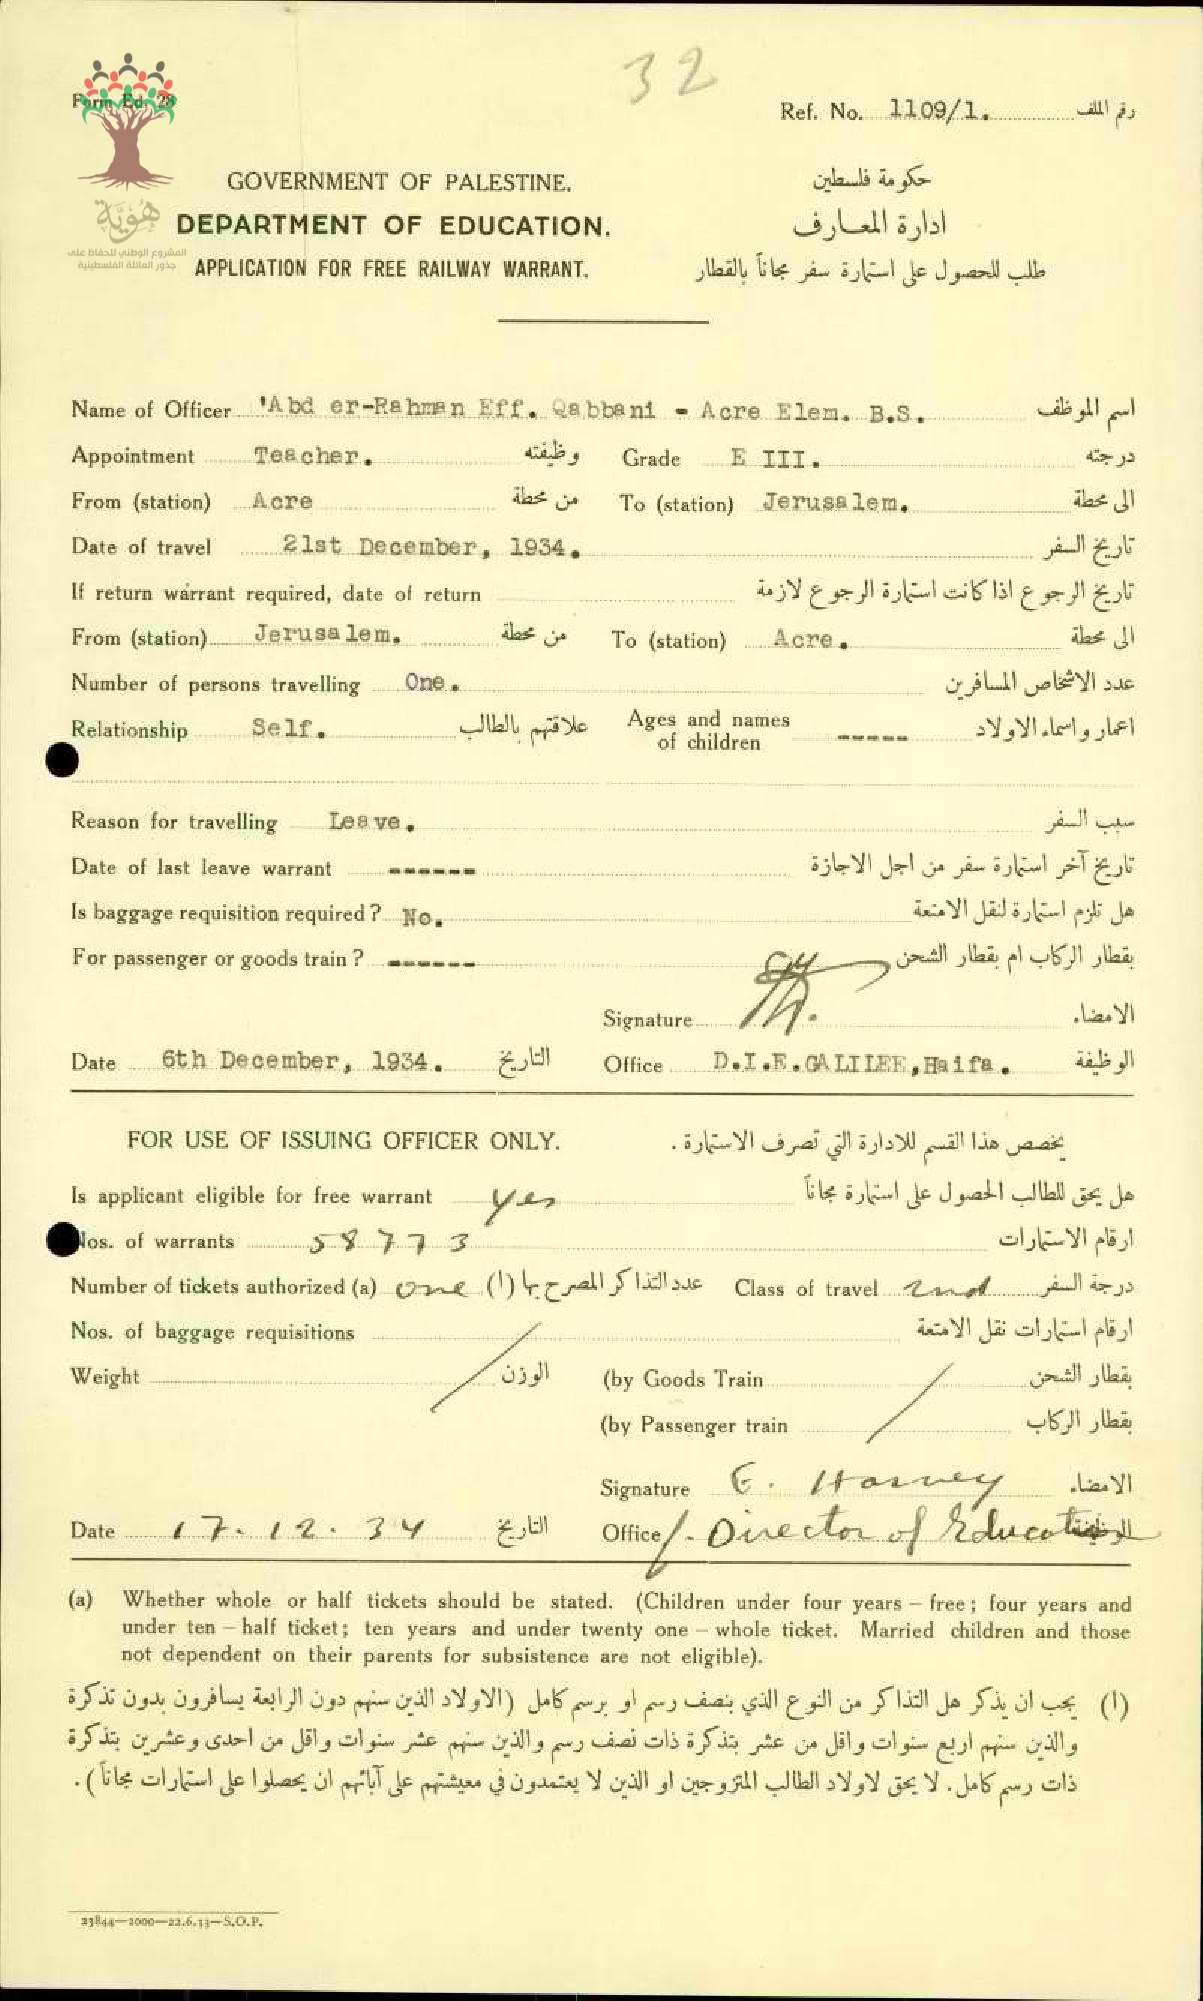 32
Form Ed. 28
Ref. No. 1109/1. رقم الملف
هُويَّة
المشروع الوطني للحفاظ على
جذور العائلة الفلسطينية
GOVERNMENT OF PALESTINE. حكومة فلسطين
DEPARTMENT OF EDUCATION. ادارة المعارف
APPLICATION FOR FREE RAILWAY WARRANT. طلب للحصول على استمارة سفر مجاناً بالقطار
Name of Officer 'Abd er-Rahman Eff. Qabbani - Acre Elem. B.S. اسم الموظف
Appointment Teacher. وظيفته Grade E III. درجته
From (station) Acre من محطة To (station) Jerusalem. الى محطة
Date of travel 21st December, 1934. تاريخ السفر
If return warrant required, date of return تاريخ الرجوع اذا كانت استمارة الرجوع لازمة
From (station) Jerusalem. من محطة To (station) Acre. الى محطة
Number of persons travelling One. عدد الاشخاص المسافرين
Relationship Self. علاقتهم بالطالب Ages and names of children ----- اعمار واسماء الاولاد
Reason for travelling Leave. سبب السفر
Date of last leave warrant ------ تاريخ آخر استمارة سفر من اجل الاجازة
Is baggage requisition required? No. هل تلزم استمارة لنقل الامتعة
For passenger or goods train? ------ بقطار الركاب ام بقطار الشحن
Signature الامضاء.
Date 6th December, 1934. التاريخ Office D.I.E.GALILEE,Haifa. الوظيفة
FOR USE OF ISSUING OFFICER ONLY. يخصص هذا القسم للادارة التي تصرف الاستمارة.
Is applicant eligible for free warrant yes هل يحق للطالب الحصول على استمارة مجاناً
Nos. of warrants 58773 ارقام الاستمارات
Number of tickets authorized (a) one عدد التذاكر المصرح بها (ا) Class of travel 2nd درجة السفر
Nos. of baggage requisitions ارقام استمارات نقل الامتعة
Weight الوزن (by Goods Train بقطار الشحن
(by Passenger train بقطار الركاب
Signature E. Harvey الامضاء.
Date 17.12.34 التاريخ Office f. Director of Education الوظيفة
(a) Whether whole or half tickets should be stated. (Children under four years – free; four years and
under ten – half ticket; ten years and under twenty one – whole ticket. Married children and those
not dependent on their parents for subsistence are not eligible).
(ا) يجب ان يذكر هل التذاكر من النوع الذي بنصف رسم او برسم كامل (الاولاد الذين سنهم دون الرابعة يسافرون بدون تذكرة
والذين سنهم اربع سنوات واقل من عشر بتذكرة ذات نصف رسم والذين سنهم عشر سنوات واقل من احدى وعشرين بتذكرة
ذات رسم كامل. لا يحق لاولاد الطالب المتزوجين او الذين لا يعتمدون في معيشتهم على آبائهم ان يحصلوا على استمارات مجاناً).
23844—2000—22.6.33—S.O.P.